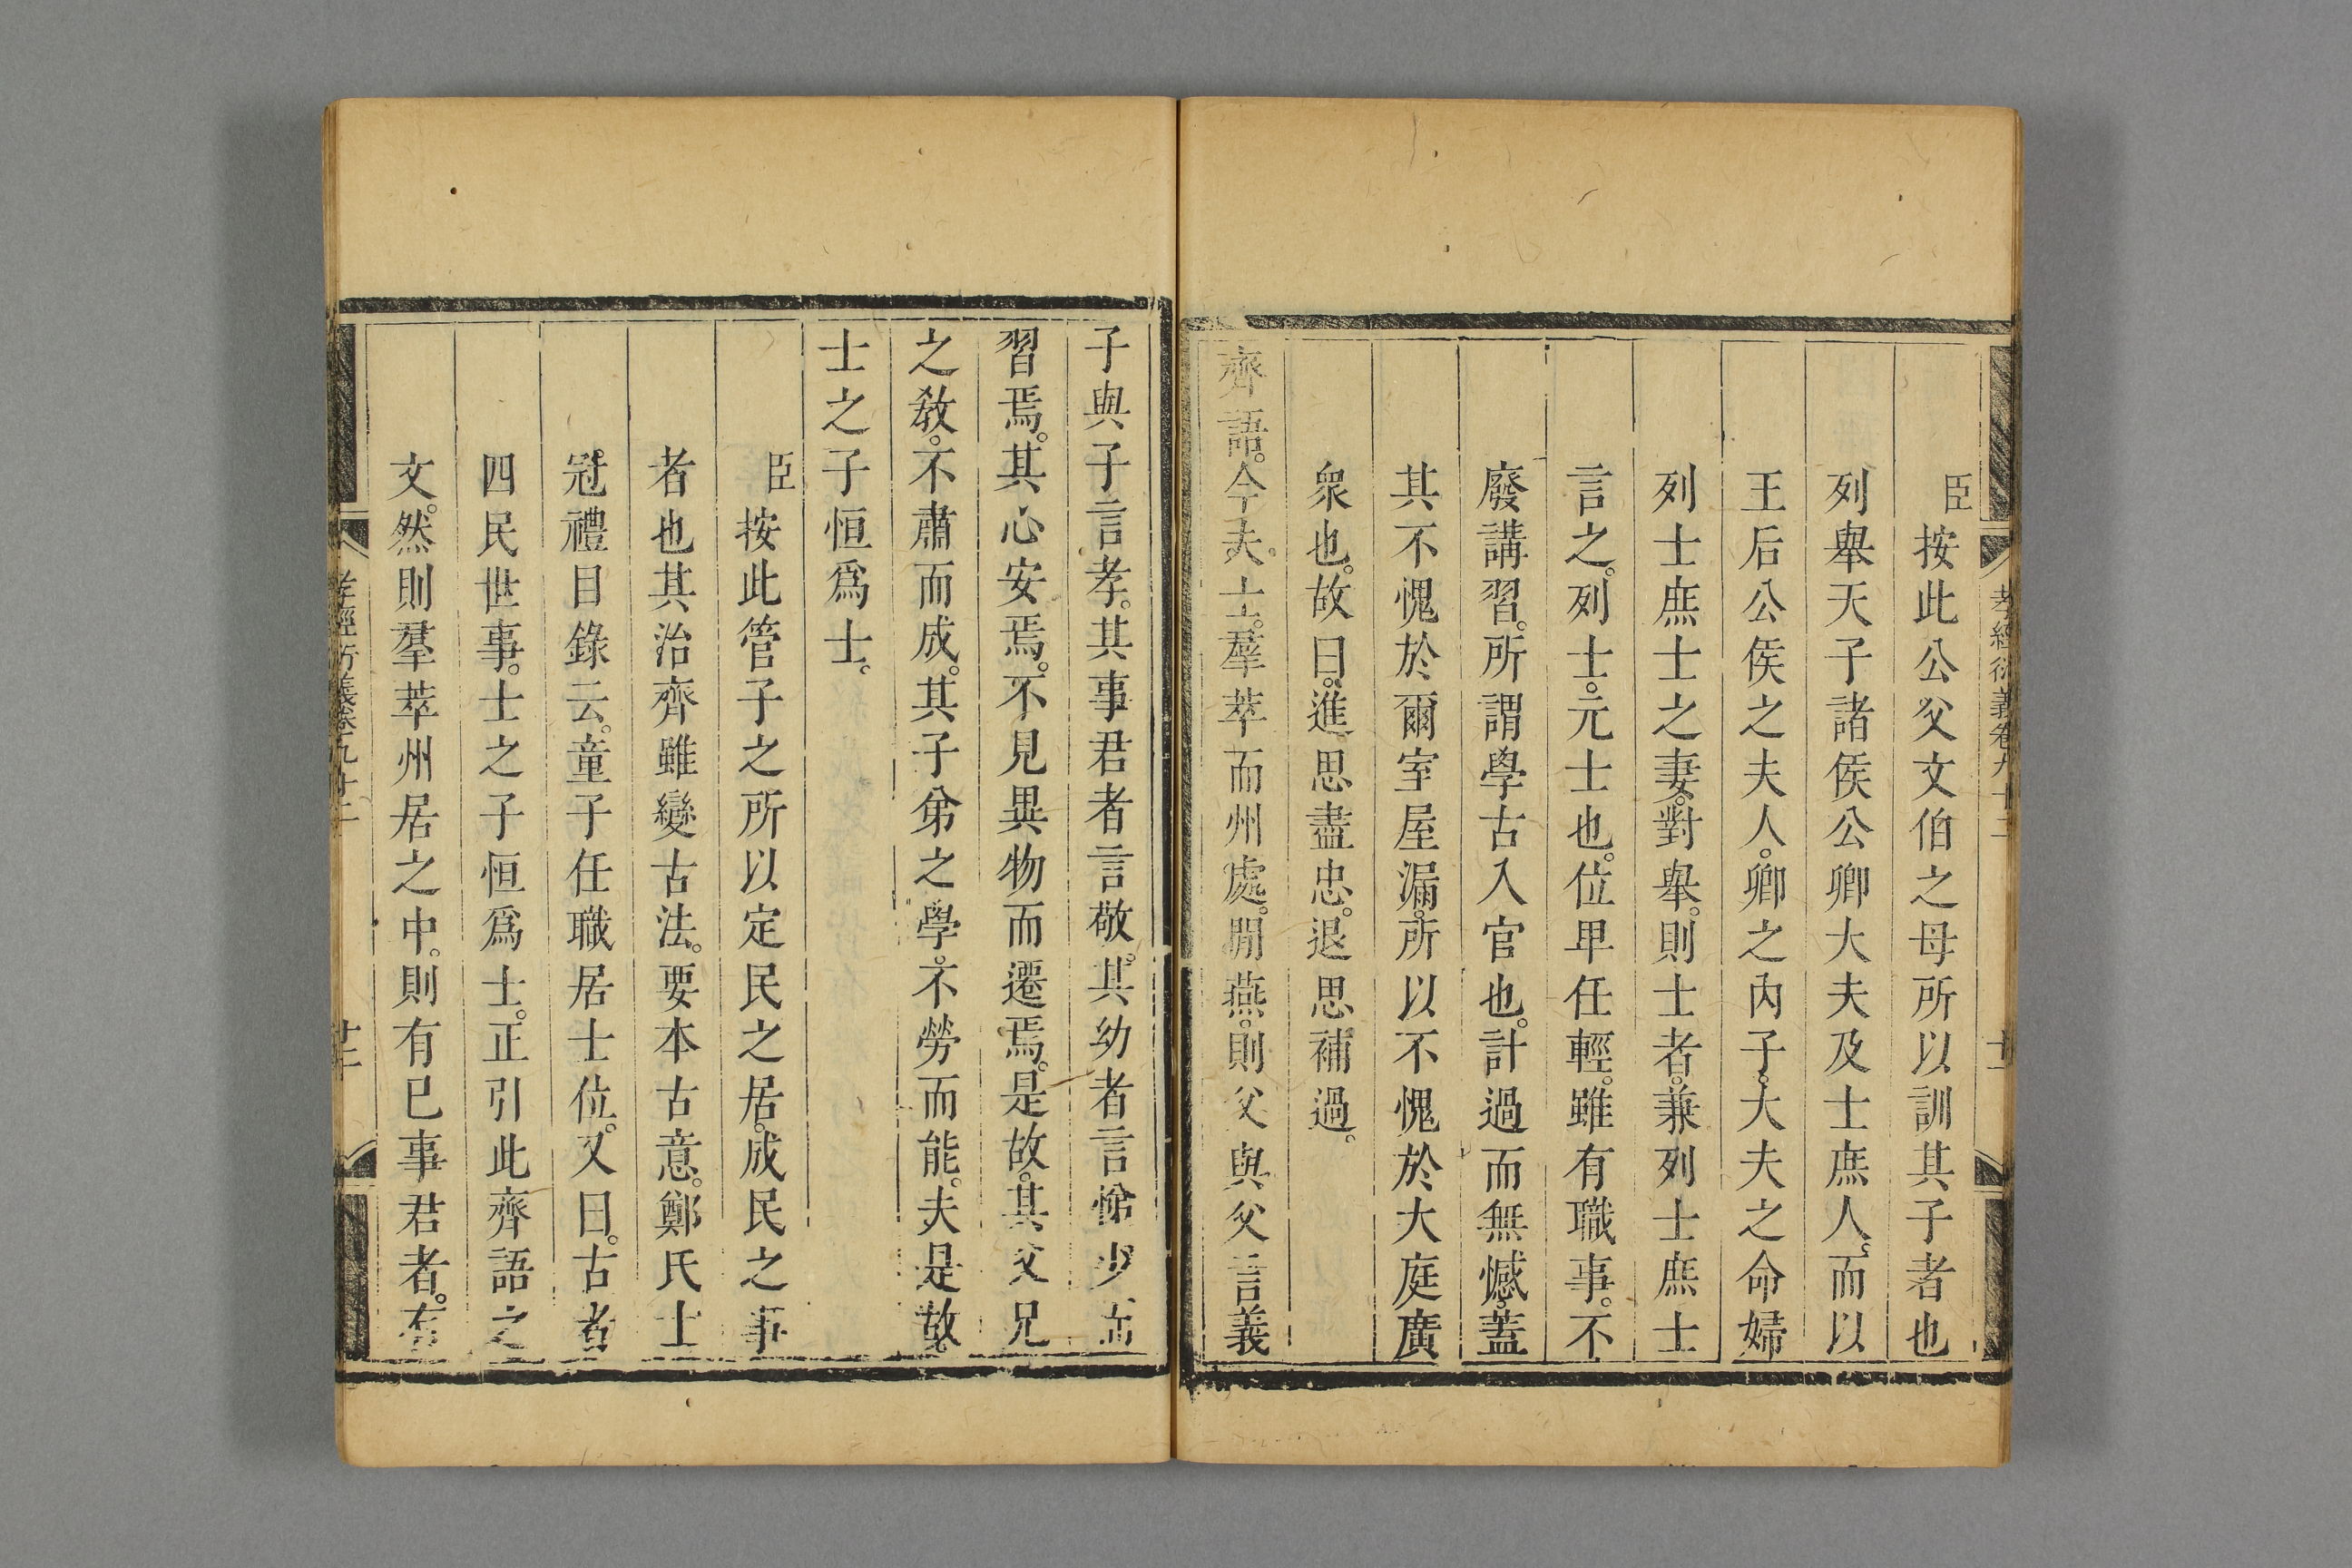 孝經衍義卷九十二
十一
臣按此公父文伯之母所以訓其子者也
列舉天子諸侯公卿大夫及士庶人。而以
王后公侯之夫人。卿之內子。大夫之命婦
列士庶士之妻。對舉。則士者。兼列士庶士
言之。列士。元士也。位卑任輕。雖有職事。不
廢講習。所謂學古入官也。計過而無憾。蓋
其不愧於爾室屋漏。所以不愧於大庭廣
衆也。故曰。進思盡忠。退思補過。
齊語。今夫士。羣萃而州處。閒燕。則父與父言義
子與子言孝。其事君者言敬。其幼者言悌。少而
習焉。其心安焉。不見異物而遷焉。是故。其父兄
之敎。不肅而成。其子弟之學。不勞而能。夫是故
士之子恒爲士。
臣按此管子之所以定民之居。成民之事
者也其治齊雖變古法。要本古意。鄭氏士
冠禮目錄云。童子任職居士位。又曰。古者
四民世事。士之子恒爲士。正引此齊語之
文。然則羣萃州居之中。則有已事君者。有
孝經衍義卷九十二
十二